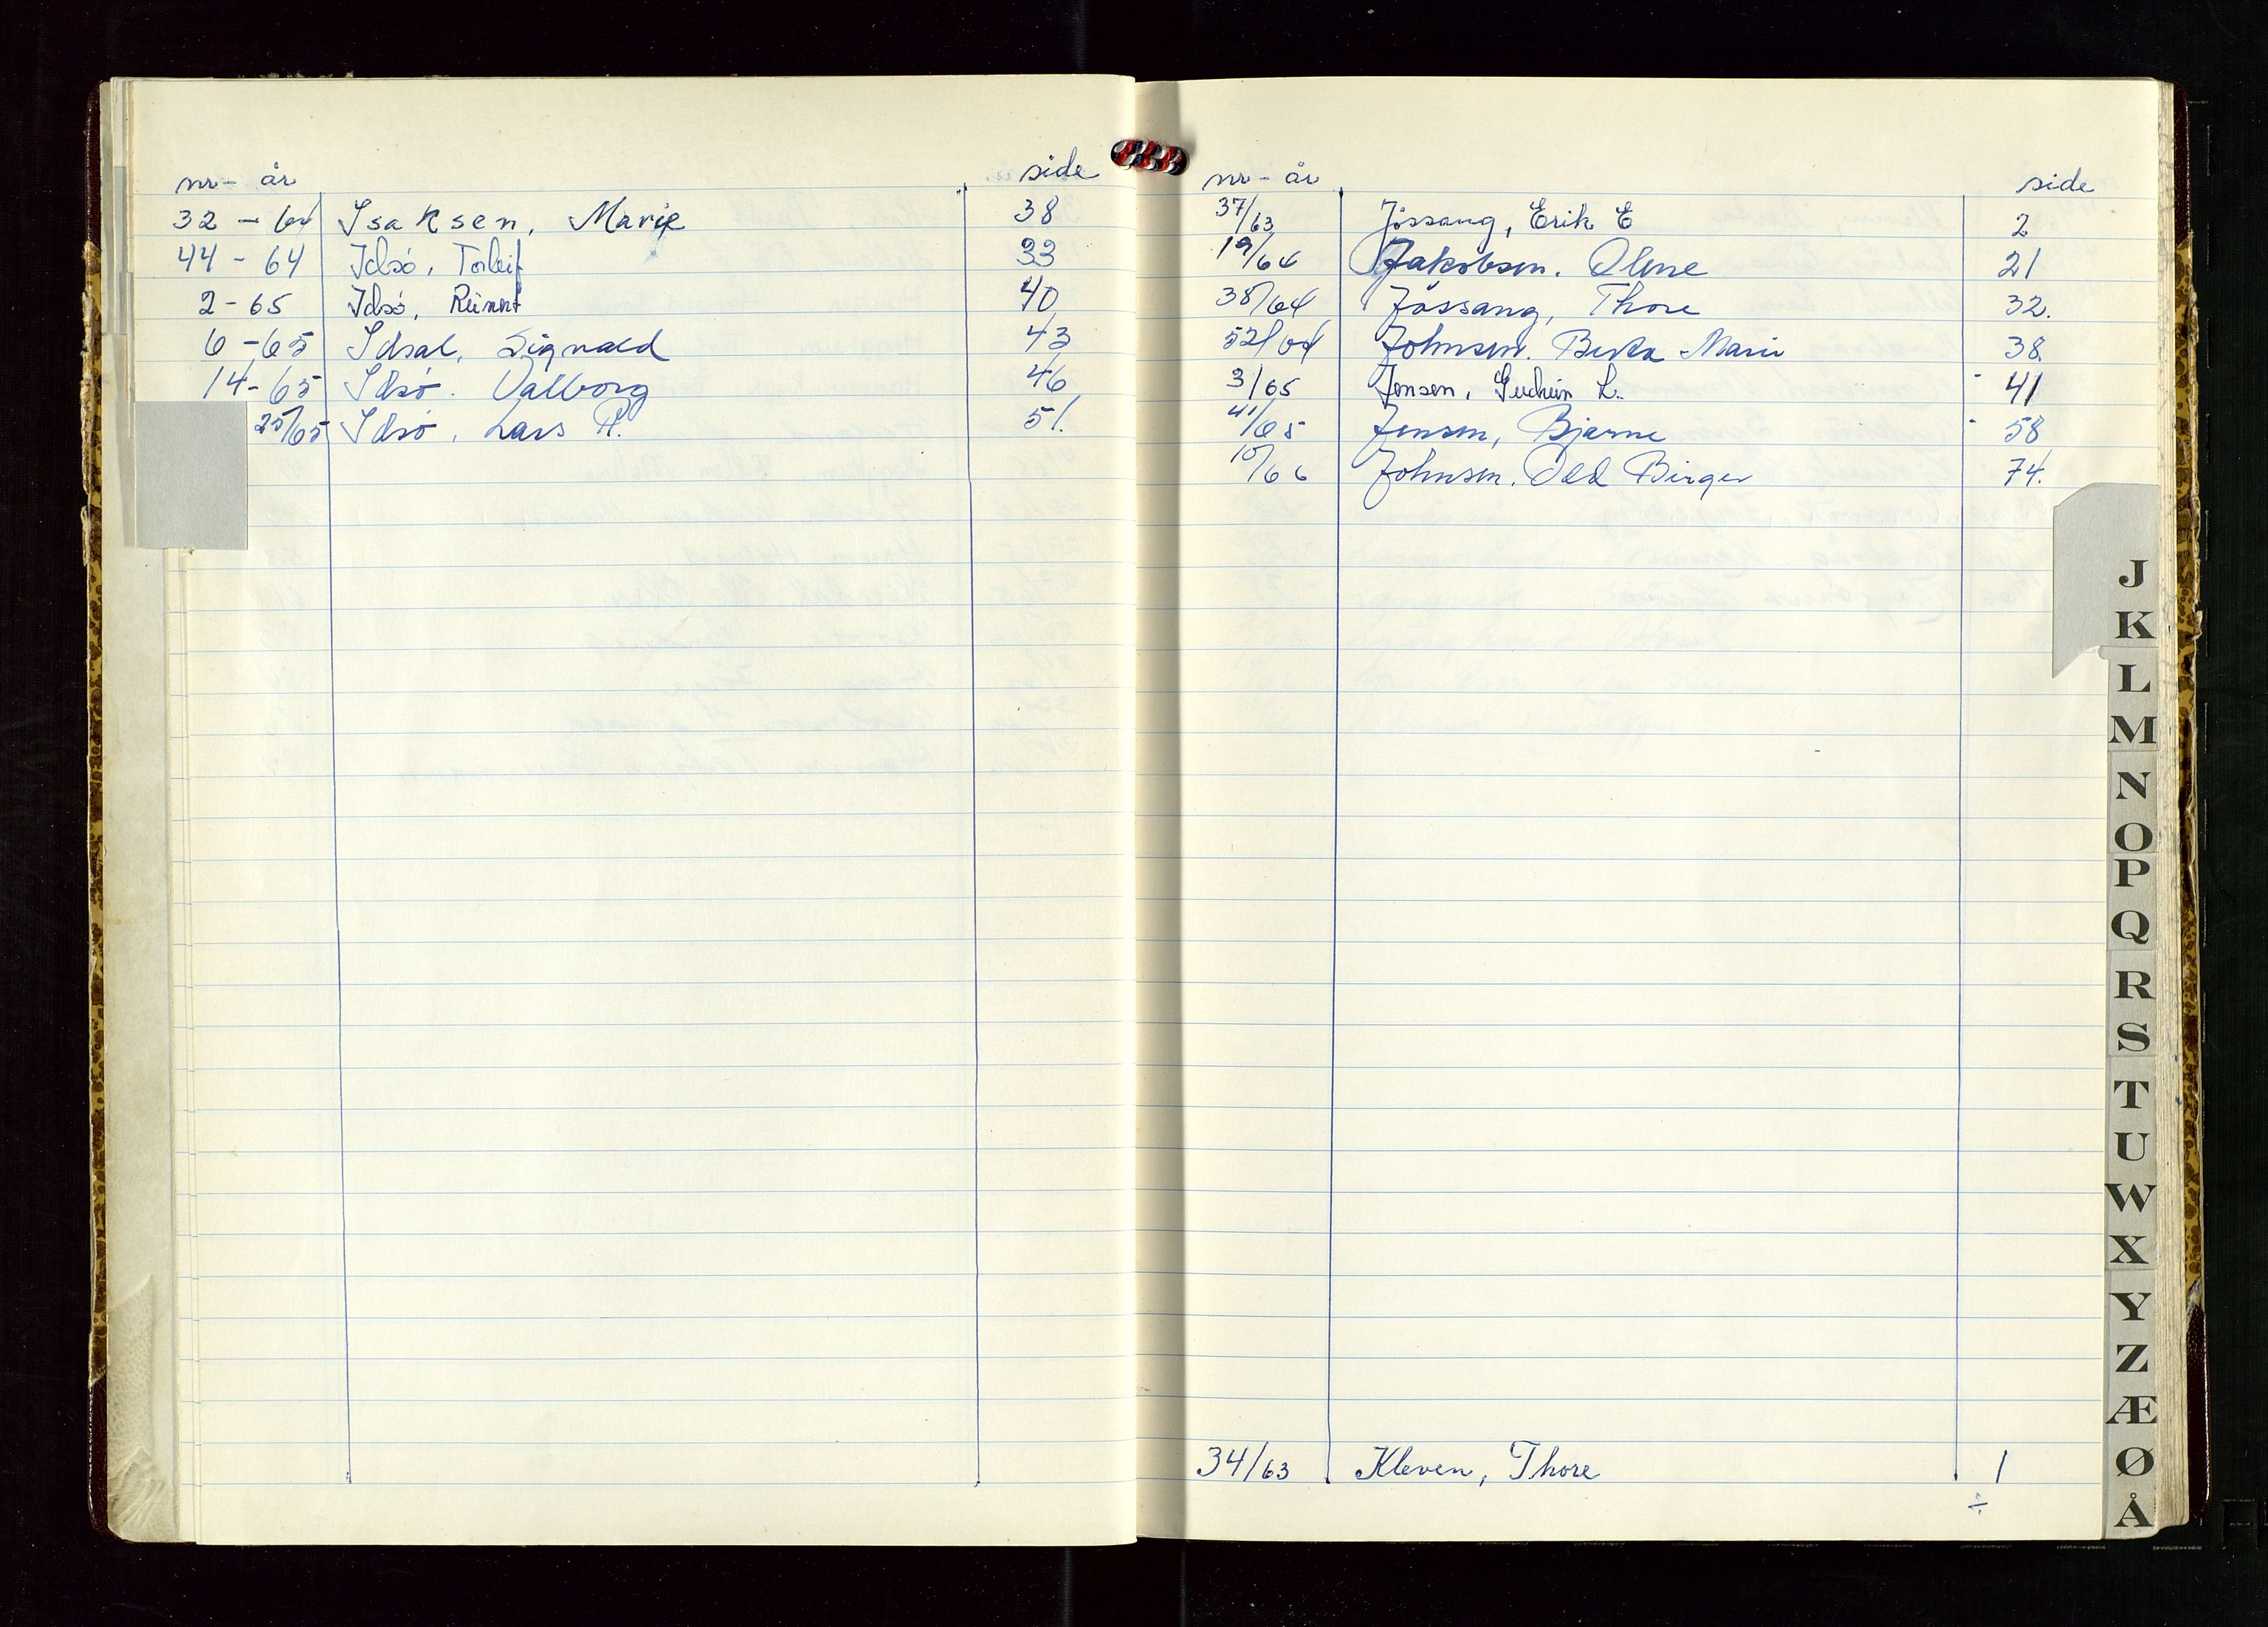 nr - år side
32 - 64 Isaksen, Marie 38
44 - 64 Idsö, Torleif 33
2 - 65 Idsö, 40
6 - 65 Idsal, Signald 43
14 - 65 Idsö. Valborg 46
25/65 Idsö, Lars P. 51.
nr - år side
37/63 Jössang, Erik E 2
19/64 Jakobsen. Olene 21
38/64 Jössang, Thore 32.
52/64 Johnsen. Berta Marie 38.
3/65 Jensen, Gudrun L. 41
41/65 Jensen, Bjarne 58
10/66 Johnsen. Odd Birger 74.
34/63 Kleven, Thore 1
J
K
L
M
N
O
P
Q
R
S
T
U
W
X
Y
Z
Æ
Ø
Å